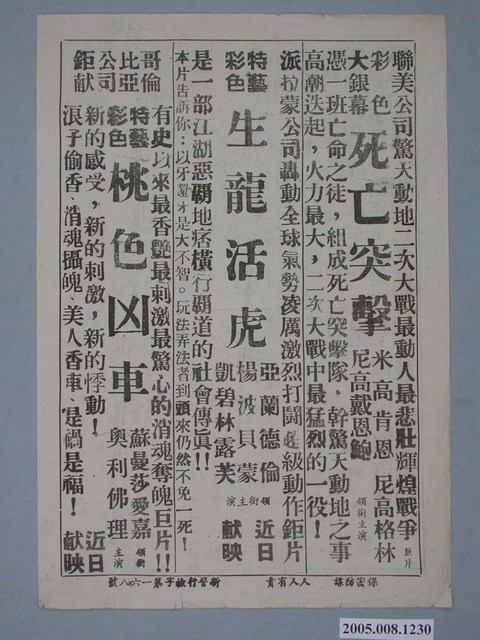 聯美公司驚天動地二次大戰最動人最悲壯輝煌戰爭巨片
彩色
大銀幕
死亡突擊
米高肯恩 尼高格林
尼高戴恩鮑
領銜主演
憑一班亡命之徒，組成死亡突擊隊，幹驚天動地之事
高潮迭起，火力最大，二次大戰中最猛烈的一役！
派拉蒙公司轟動全球氣勢凌厲激烈打鬪超級動作鉅片
特藝
彩色
生龍活虎
亞蘭德倫
楊波貝蒙
凱碧林露芙
領銜主演
近日
献映
是一部江湖惡覇地痞橫行覇道的社會傳眞！！
本片告訴你：以牙還牙是大不智。玩法弄法者到頭來仍然不免一死！
哥倫
比亞
公司
鉅献
有史以來最香艷最刺激最驚心的消魂奪魄巨片！！
特藝
彩色
桃色凶車
蘇曼莎愛嘉
奧利佛理
領銜
主演
近日
献映
新的感受，新的刺激，新的悸動！
浪子偷香、消魂攝魄、美人香車、是禍是福！
保密防諜 人人有責 新警行檢字第一六〇八號
2005.008.1230